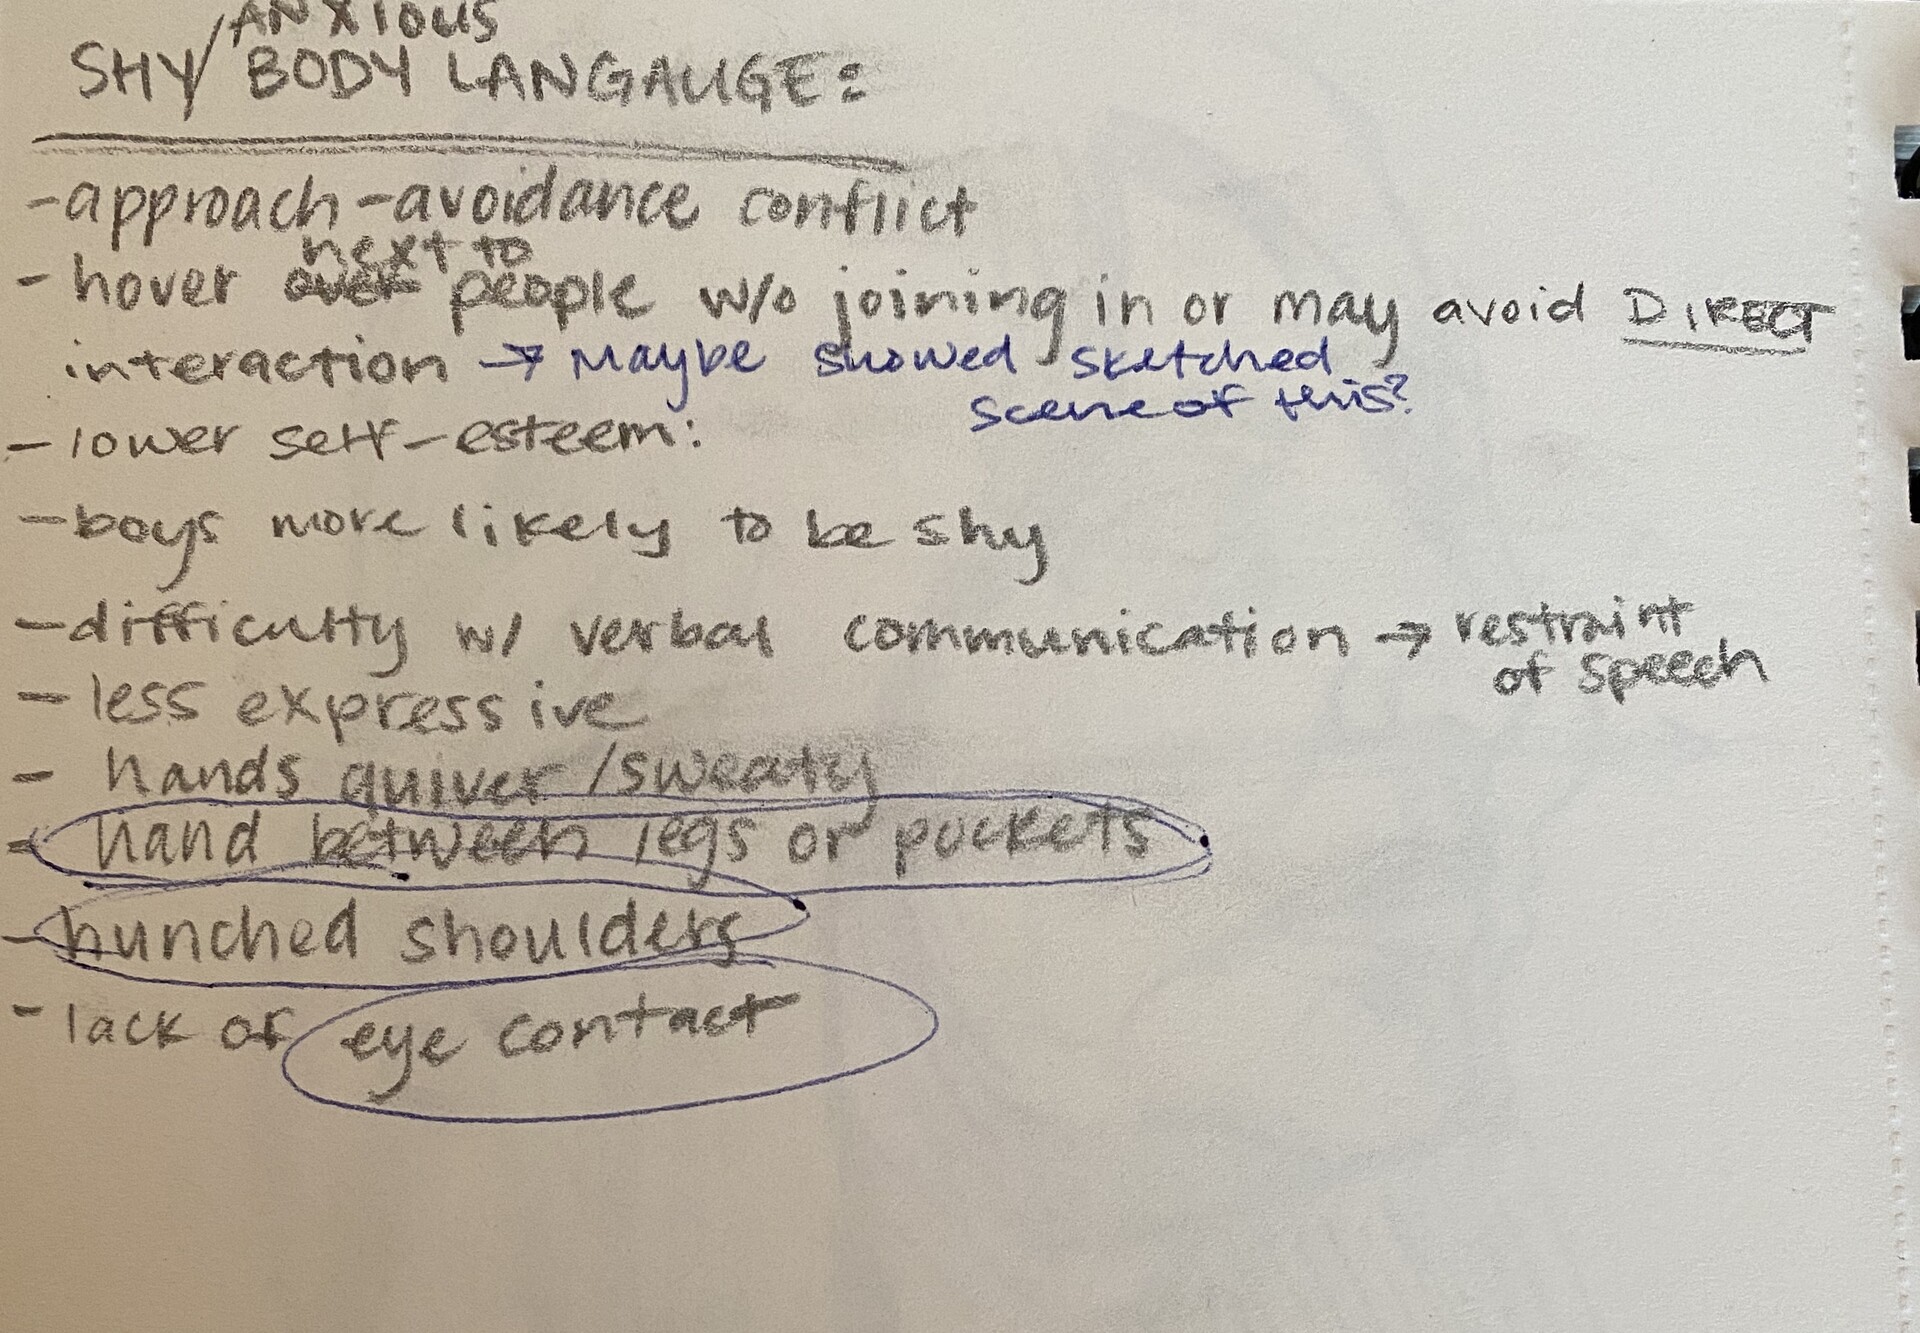 SHY/ANXIOUS BODY LANGAUGE:
-approach-avoidance conflict
- hover over next to people w/o joining in or may avoid DIRECT
interaction → Maybe showed sketched
scene of this?
- lower self-esteem:
- boys more likely to be shy
- difficulty w/ verbal communication → restraint
of speech
- less expressive
- hands quiver/sweaty
- hand between legs or pockets
- hunched shoulders
- lack of eye contact